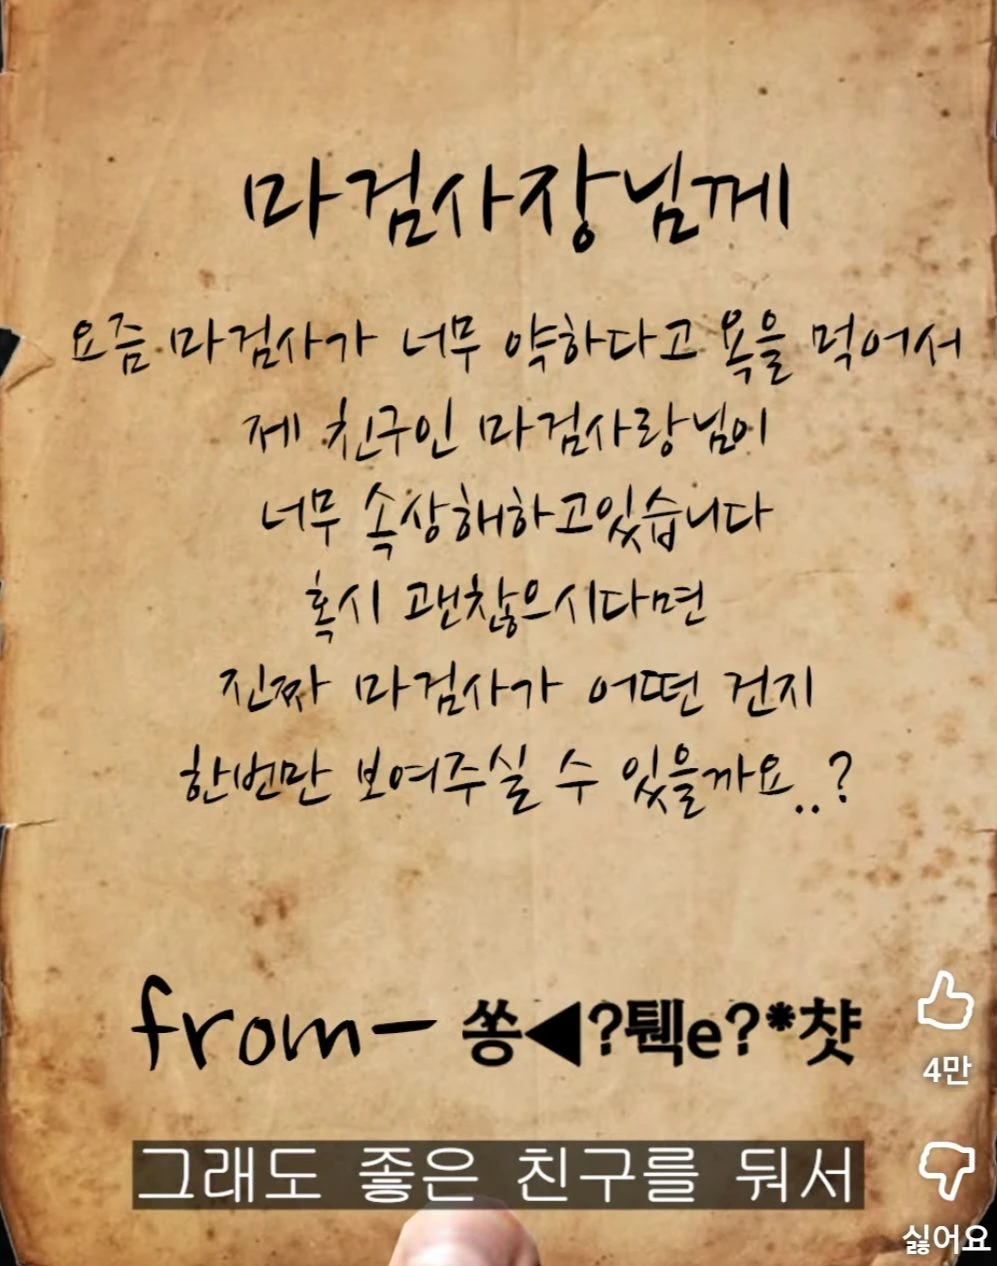 마검사장님께
요즘 마검사가 너무 약하다고 욕을 먹어서
제 친구인 마검사랑님이
너무 속상해하고있습니다
혹시 괜찮으시다면
진짜 마검사가 어떤 건지
한번만 보여주실 수 있을까요..?
from- 쏭◀?퉥e?*챳
4만
그래도 좋은 친구를 둬서
싫어요